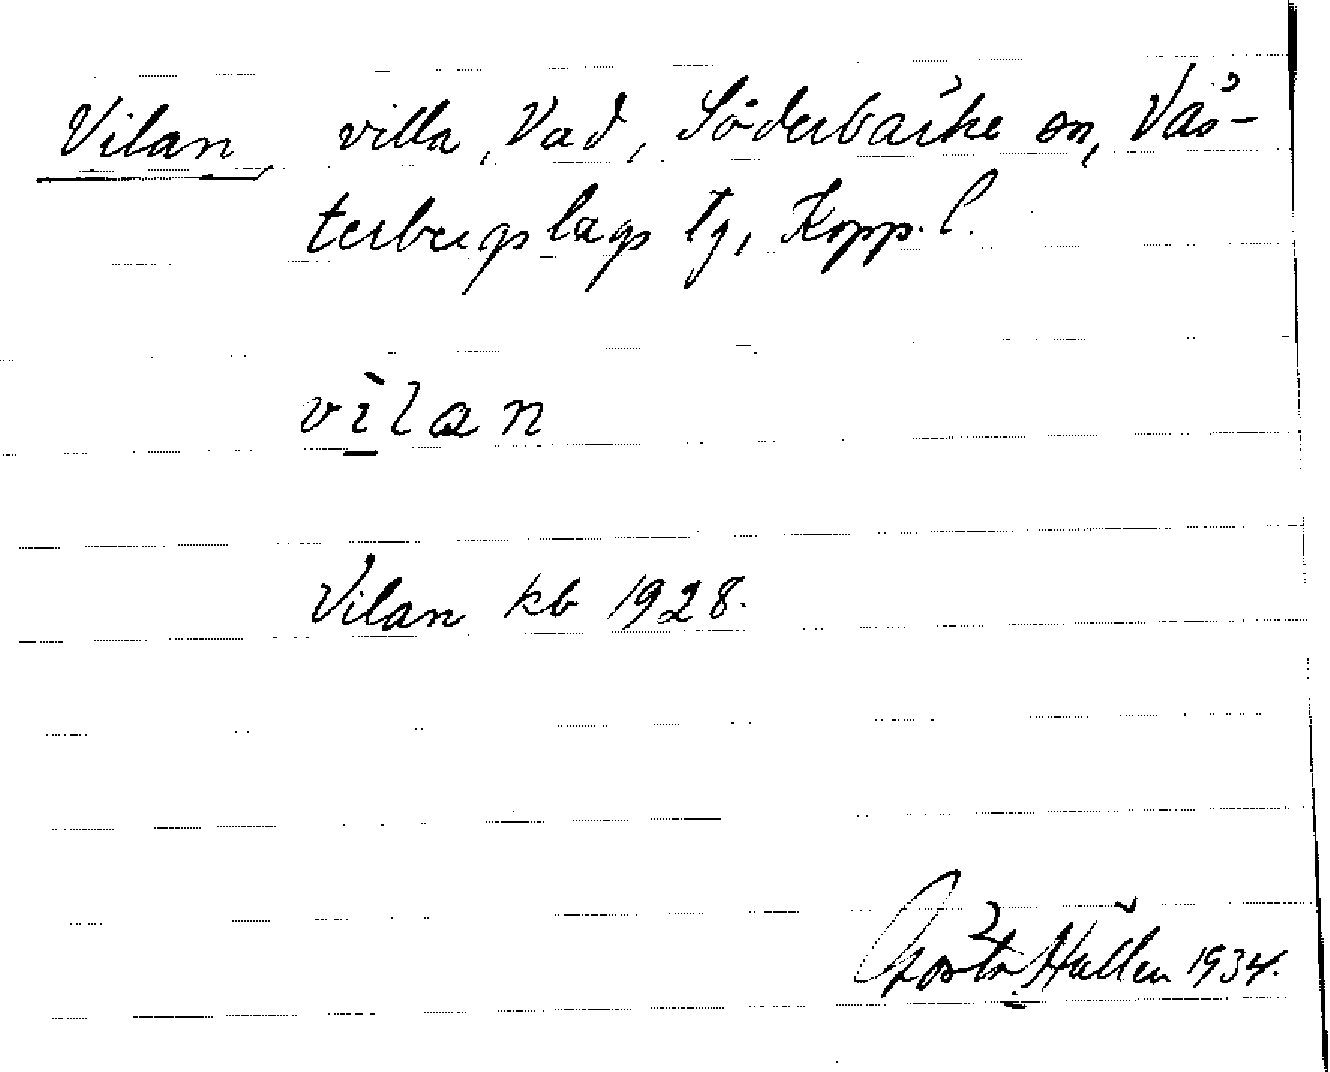 Vilan, villa, Vad, Söderbärke sn, Väs-
terbergslags tg, Kopp. l.
vìlan
Vilan kb 1928.
Gösta Hällen 1934.